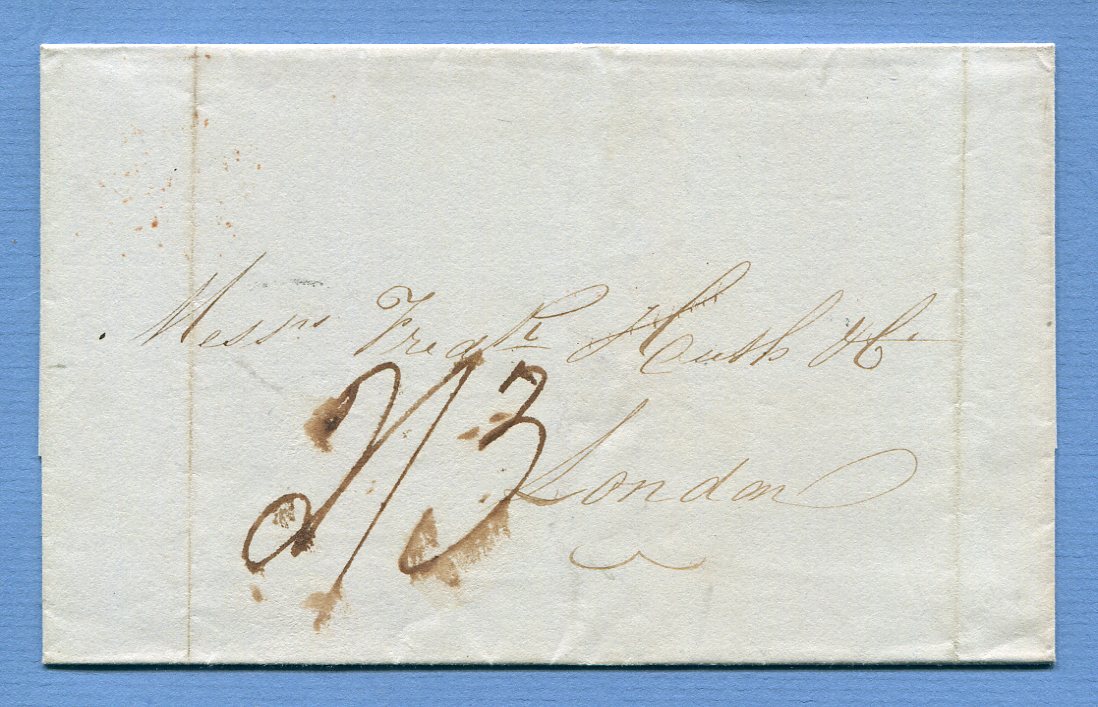 Messrs Fredk Huth & Co.
2/3
London